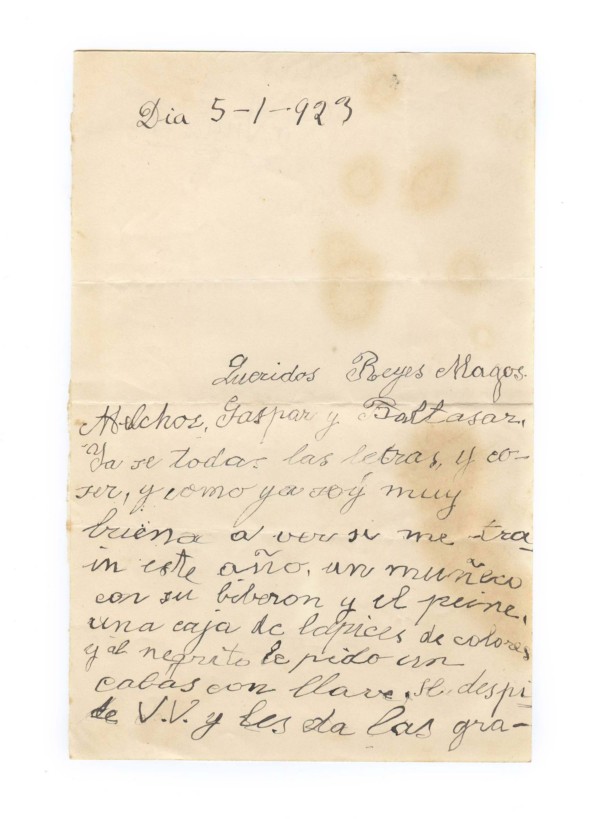 Dia 5-1-923
Queridos Reyes Magos
Melchor, Gaspar y Baltasar,
Ya se todas las letras, y co-
ser, y como ya soy muy
buena a ver si me tra
in este año, un muñeco
con su biberon y el peine,
una caja de lapices de colores
y al negrito le pido un
cabas con llave, se despi
de V.V. y les da las gra-